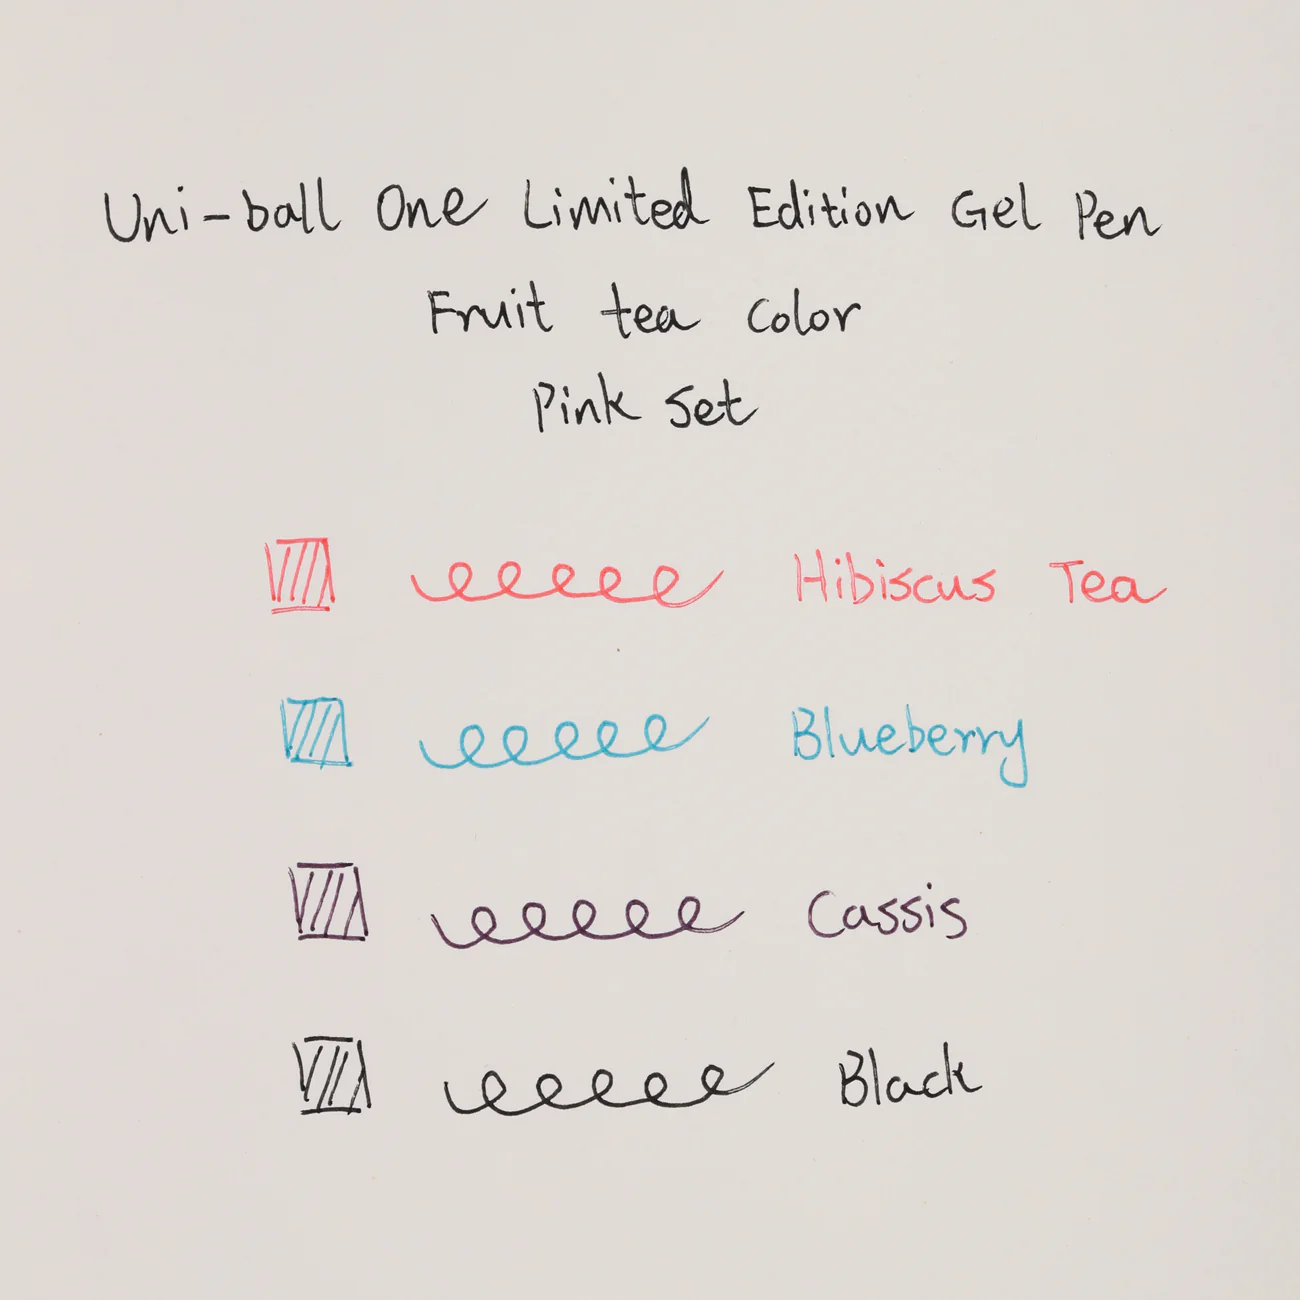 Uni-ball One Limited Edition Gel Pen
Fruit tea color
Pink Set
Hibiscus Tea
Blueberry
Cassis
Black